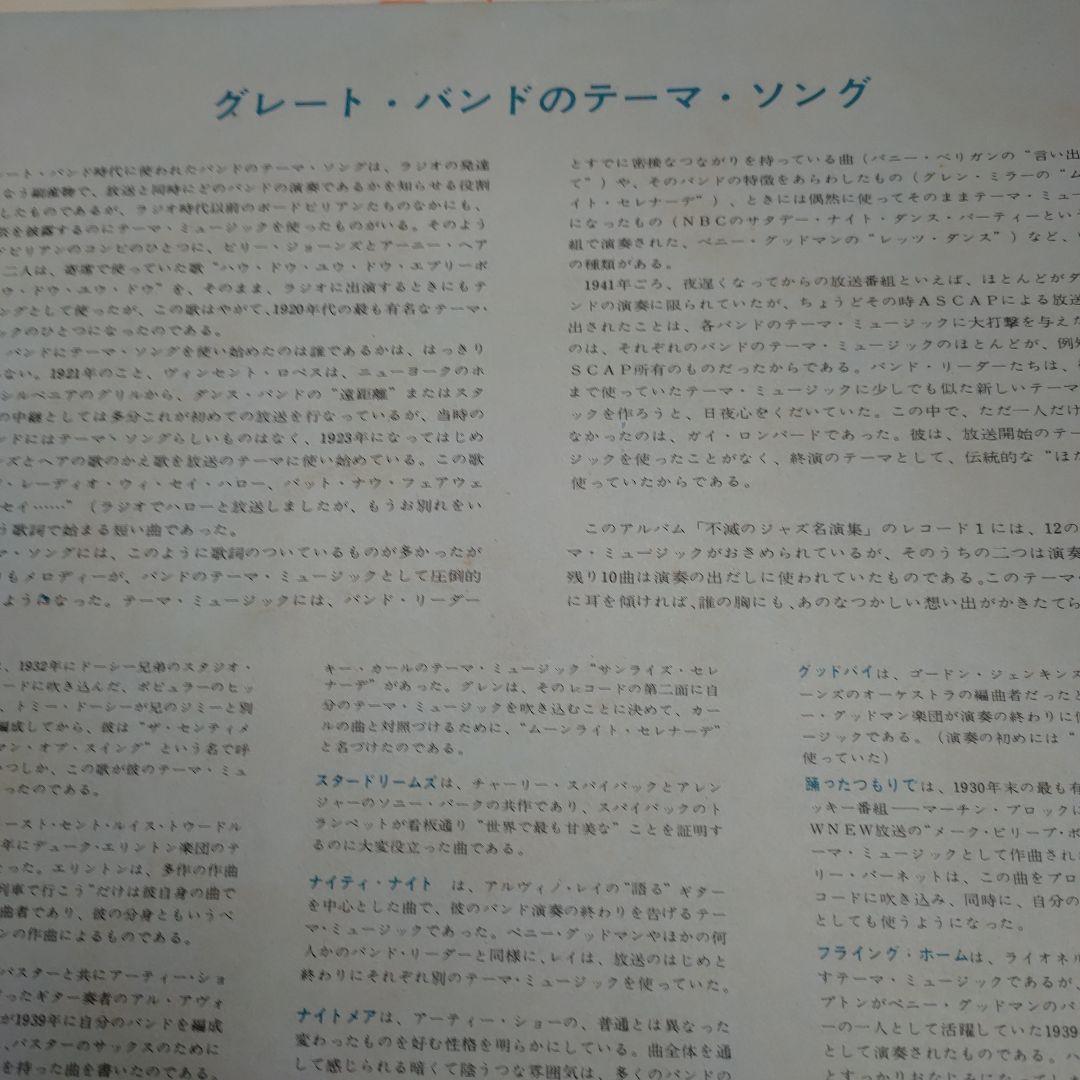 グレート・バンドのテーマ・ソング
ート・バンド時代に使われたバンドのテーマ・ソングは、ラジオの発達
なう副産物で、放送と同時にどのバンドの演奏であるかを知らせる役割
したものであるが、ラジオ時代以前のボードビリアンたちのなかにも、
芸を披露するのにテーマ・ミュージックを使ったものがいる。そのよう
ドビリアンのコンビのひとつに、ビリー・ジョーンズとアーニー・ヘア
二人は、寄席で使っていた歌“ハウ・ドウ・ユウ・ドウ・エブリーボ
ウ・ドウ・ユウ・ドウ”を、そのまま、ラジオに出演するときにもテ
ングとして使ったが、この歌はやがて、1920年代の最も有名なテーマ・
ックのひとつになったのである。
バンドにテーマ・ソングを使い始めたのは誰であるかは、はっきり
ない。1921年のこと、ヴィンセント・ロペスは、ニューヨークのホ
シルベニアのグリルから、ダンス・バンドの“遠距離”またはスタ
の中継としては多分これが初めての放送を行なっているが、当時の
ンドにはテーマ・ソングらしいものはなく、1923年になってはじめ
ンズとヘアの歌のかえ歌を放送のテーマに使い始めている。この歌
・レーディオ・ウィ・セイ・ハロー、バット・ナウ・フェアウェ
セイ……”（ラジオでハローと放送しましたが、もうお別れをい
う歌詞で始まる短い曲であった。
マ・ソングには、このように歌詞のついているものが多かったが
りもメロディーが、バンドのテーマ・ミュージックとして圧倒的
ようになった。テーマ・ミュージックには、バンド・リーダー
とすでに密接なつながりを持っている曲（バニー・ベリガンの“言い出
て”）や、そのバンドの特徴をあらわしたもの（グレン・ミラーの“ム
イト・セレナーデ”）、ときには偶然に使ってそのままテーマ・ミュー
になったもの（NBCのサタデー・ナイト・ダンス・パーティーとい
組で演奏された、ベニー・グッドマンの“レッツ・ダンス”）など、
の種類がある。
1941年ごろ、夜遅くなってからの放送番組といえば、ほとんどがダ
ンドの演奏に限られていたが、ちょうどその時ASCAPによる放送
出されたことは、各バンドのテーマ・ミュージックに大打撃を与えた
のは、それぞれのバンドのテーマ・ミュージックのほとんどが、例外
SCAP所有のものだったからである。バンド・リーダーたちは、
まで使っていたテーマ・ミュージックに少しでも似た新しいテーマ
ックを作ろうと、日夜心をくだいていた。この中で、ただ一人だけ
なかったのは、ガイ・ロンバードであった。彼は、放送開始のテー
ジックを使ったことがなく、終演のテーマとして、伝統的な“ほた
使っていたからである。
このアルバム「不滅のジャズ名演集」のレコード1には、12の
マ・ミュージックがおさめられているが、そのうちの二つは演奏
残り10曲は演奏の出だしに使われていたものである。このテーマ
に耳を傾ければ、誰の胸にも、あのなつかしい想い出がかきたてら
、1932年にドーシー兄弟のスタジオ・
ードに吹き込んだ、ポピュラーのヒッ
、トミー・ドーシーが兄のジミーと別
編成してから、彼は“ザ・センティメ
マン・オブ・スイング”という名で呼
いつしか、この歌が彼のテーマ・ミュ
ったのである。
ースト・セント・ルイス・トウードル
年にデューク・エリントン楽団のテ
った。エリントンは、多作の作曲
列車で行こう”だけは彼自身の曲で
曲者であり、彼の分身ともいうべ
ンの作曲によるものである。
バスターと共にアーティー・ショ
だったギター奏者のアル・アヴォ
が1939年に自分のバンドを編成
、バスターのサックスのために
を持った曲を書いたのである。
キー・カールのテーマ・ミュージック“サンライズ・セレ
ナーデ”があった。グレンは、そのレコードの第二面に自
分のテーマ・ミュージックを吹き込むことに決めて、カー
ルの曲と対照づけるために、“ムーンライト・セレナーデ”
と名づけたのである。
スタードリームズは、チャーリー・スパイバックとアレン
ジャーのソニー・バークの共作であり、スパイバックのト
ランペットが看板通り“世界で最も甘美な”ことを証明す
るのに大変役立った曲である。
ナイティ・ナイト は、アルヴィノ・レイの“語る”ギター
を中心とした曲で、彼のバンド演奏の終わりを告げるテー
マ・ミュージックであった。ベニー・グッドマンやほかの何
人かのバンド・リーダーと同様に、レイは、放送のはじめと
終わりにそれぞれ別のテーマ・ミュージックを使っていた。
ナイトメアは、アーティー・ショーの、普通とは異なった
変わったものを好む性格を明らかにしている。曲全体を通
して感じられる暗くて陰うつな雰囲気は、多くのバンドの
グッドバイは、ゴードン・ジェンキンス
ーンズのオーケストラの編曲者だったと
ー・グッドマン楽団が演奏の終わりに使
ージックである。（演奏の初めには“
使っていた）
踊ったつもりでは、1930年末の最も有
ッキー番組――マーチン・ブロックに
WNEW放送の“メーク・ビリーブ・ボ
ーマ・ミュージックとして作曲され
リー・バーネットは、この曲をブロ
コードに吹き込み、同時に、自分の
としても使うようになった。
フライング・ホームは、ライオネル
すテーマ・ミュージックであるが、
プトンがベニー・グッドマンのバ
ーの一人として活躍していた1939
として演奏されたものである。ハ
とすっかりおなじみになってし